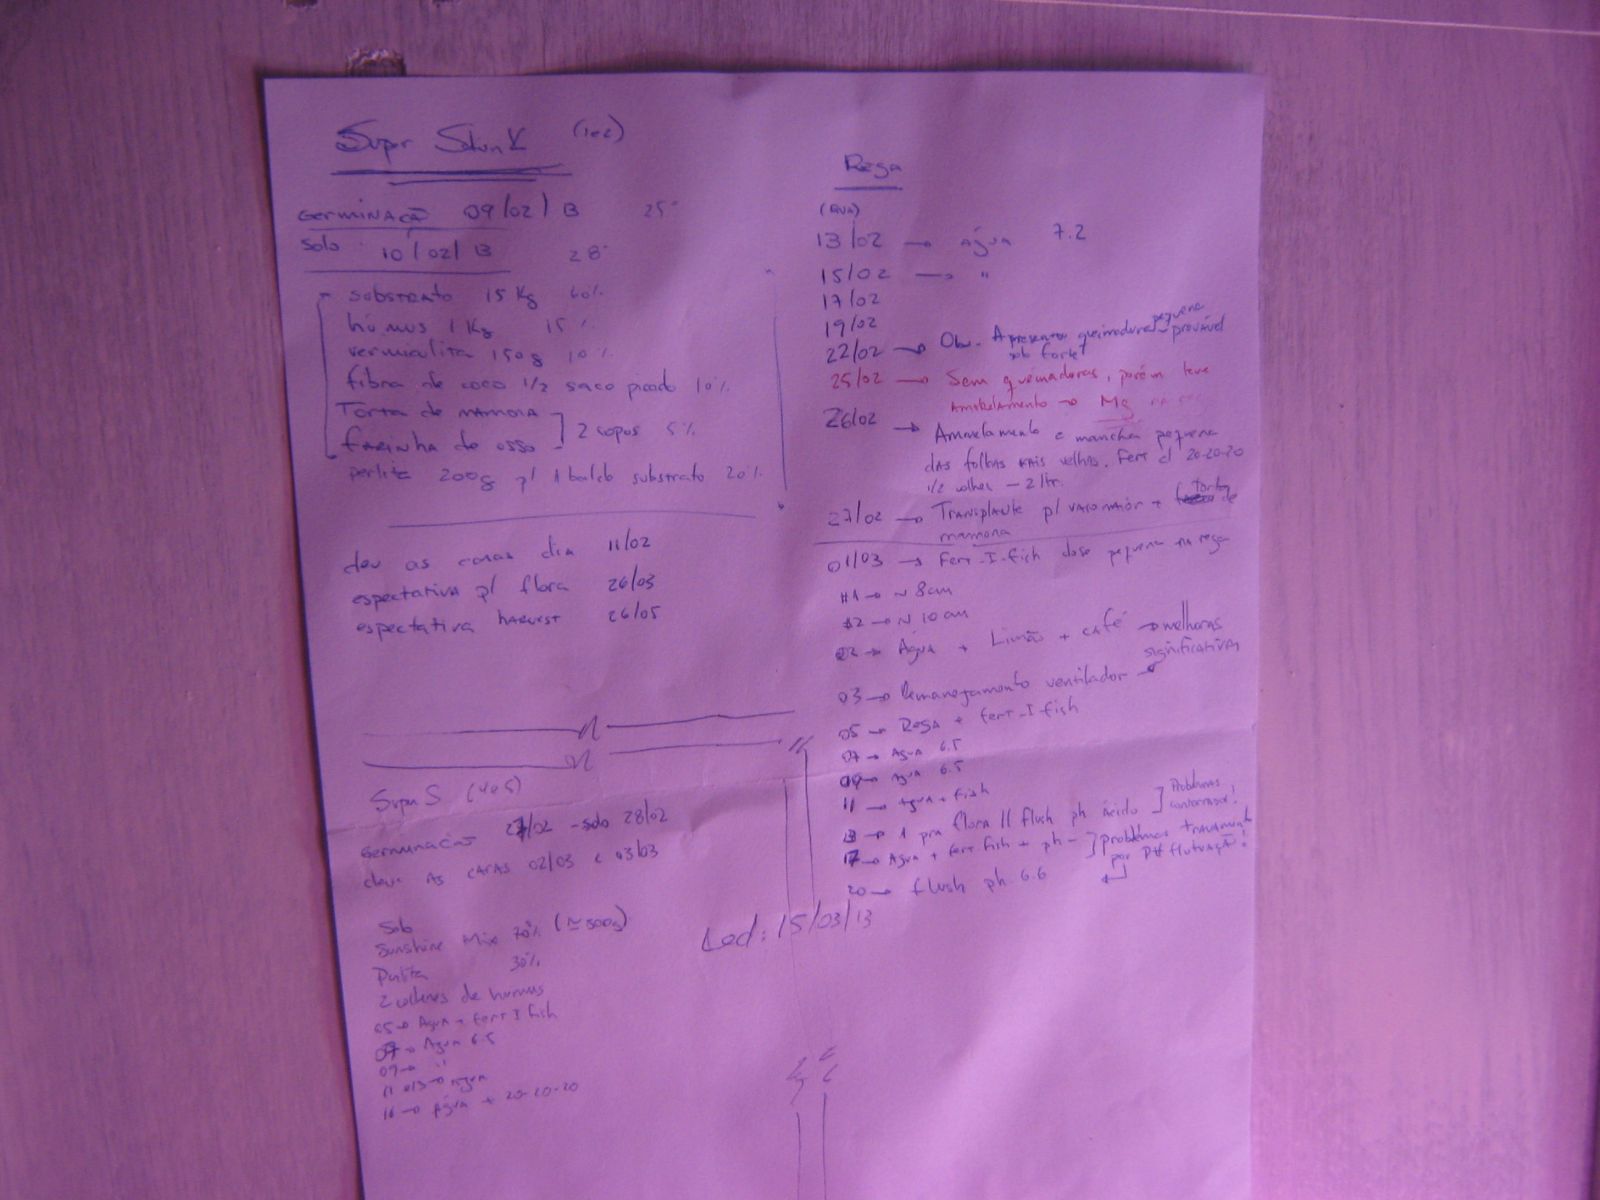 Super Skunk (1e2)
Germinação 09/02/13 25°
Solo 10/02/13 28°
substrato 15 Kg 60%
húmus 1 Kg 15%
vermiculita 150g 10%
fibra de coco 1/2 saco picado 10%
Torta de mamona
farinha de osso ] 2 copos 5%
perlita 200g p/ 1 balde substrato 20%
deu as caras dia 11/02
espectativa p/ flora 26/03
espectativa harvest 26/05
Super S (4e5)
Germinação 27/02 - solo 28/02
deu as caras 02/03 e 03/03
Solo
Sunshine Mix 70% (≃500g)
Perlita 30%
2 colheres de humus
05 → Agua + Fert I fish
07 → Agua 6.5
09 → "
11 e 13 → agua
16 → Água + 20-20-20
Rega
(QUA)
13/02 → água 7.2
15/02 → "
17/02
19/02
22/02 → Obs. Apresentou pequena queimadura - provável
solo forte
25/02 → Sem queimaduras, porém leve
amarelamento → Mg na
26/02 → Amarelamento e mancha pequena
das folhas mais velhas. Fert c/ 20-20-20
1/2 colher - 2 ltr.
27/02 → Transplante p/ vaso maior + torta de
mamona
01/03 → Fert-I-fish dose pequena na rega
#1 → ~ 8cm
#2 → ~ 10cm
02 → Água + Limão + café → melhoras
significativas
03 → Remanejamento ventilador
05 → Rega + fert-I fish
07 → Agua 6.5
09 → Agua 6.5
11 → agua + fish
13 → 1 pra flora // flush ph ácido ] Problemas
contornados!
17 → Agua + fert fish + ph - ] problemas travamento
por PH flutuação!
20 → flush ph. 6.6
Led: 15/03/13